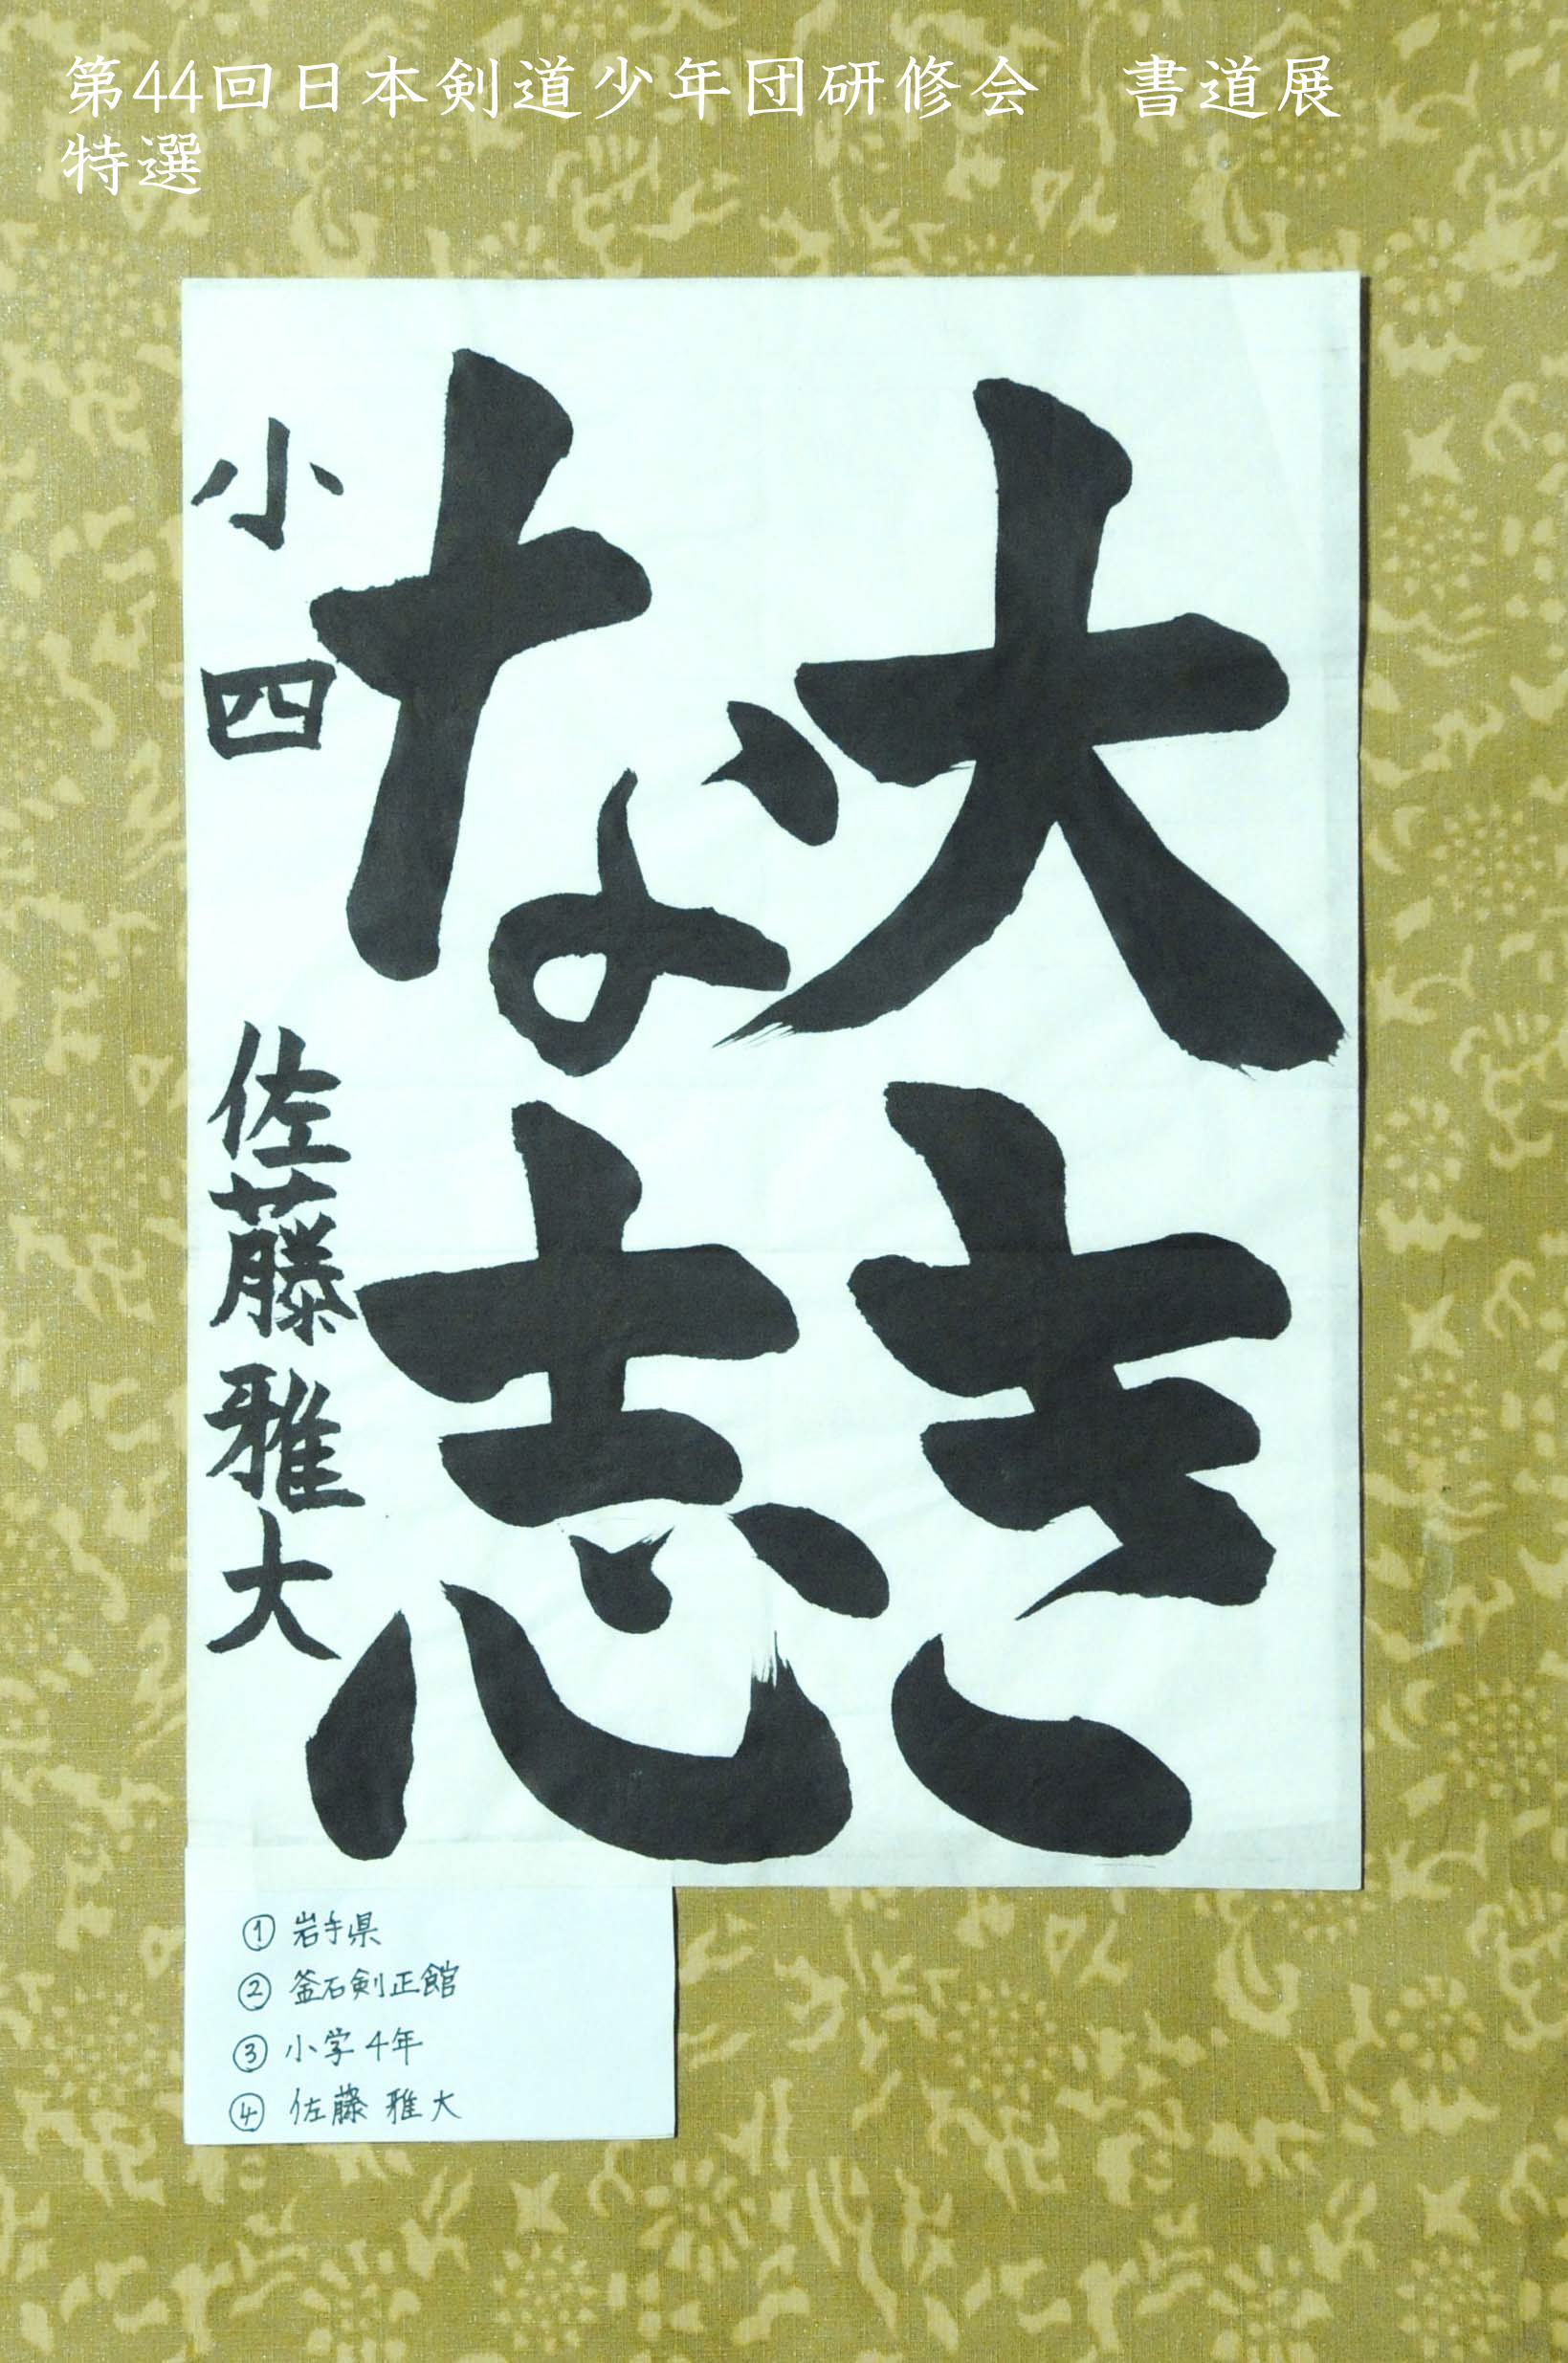 第44回日本剣道少年団研修会　書道展
特選
大き
な志
小四 佐藤雅大
① 岩手県
② 釜石剣正館
③ 小学4年
④ 佐藤 雅大